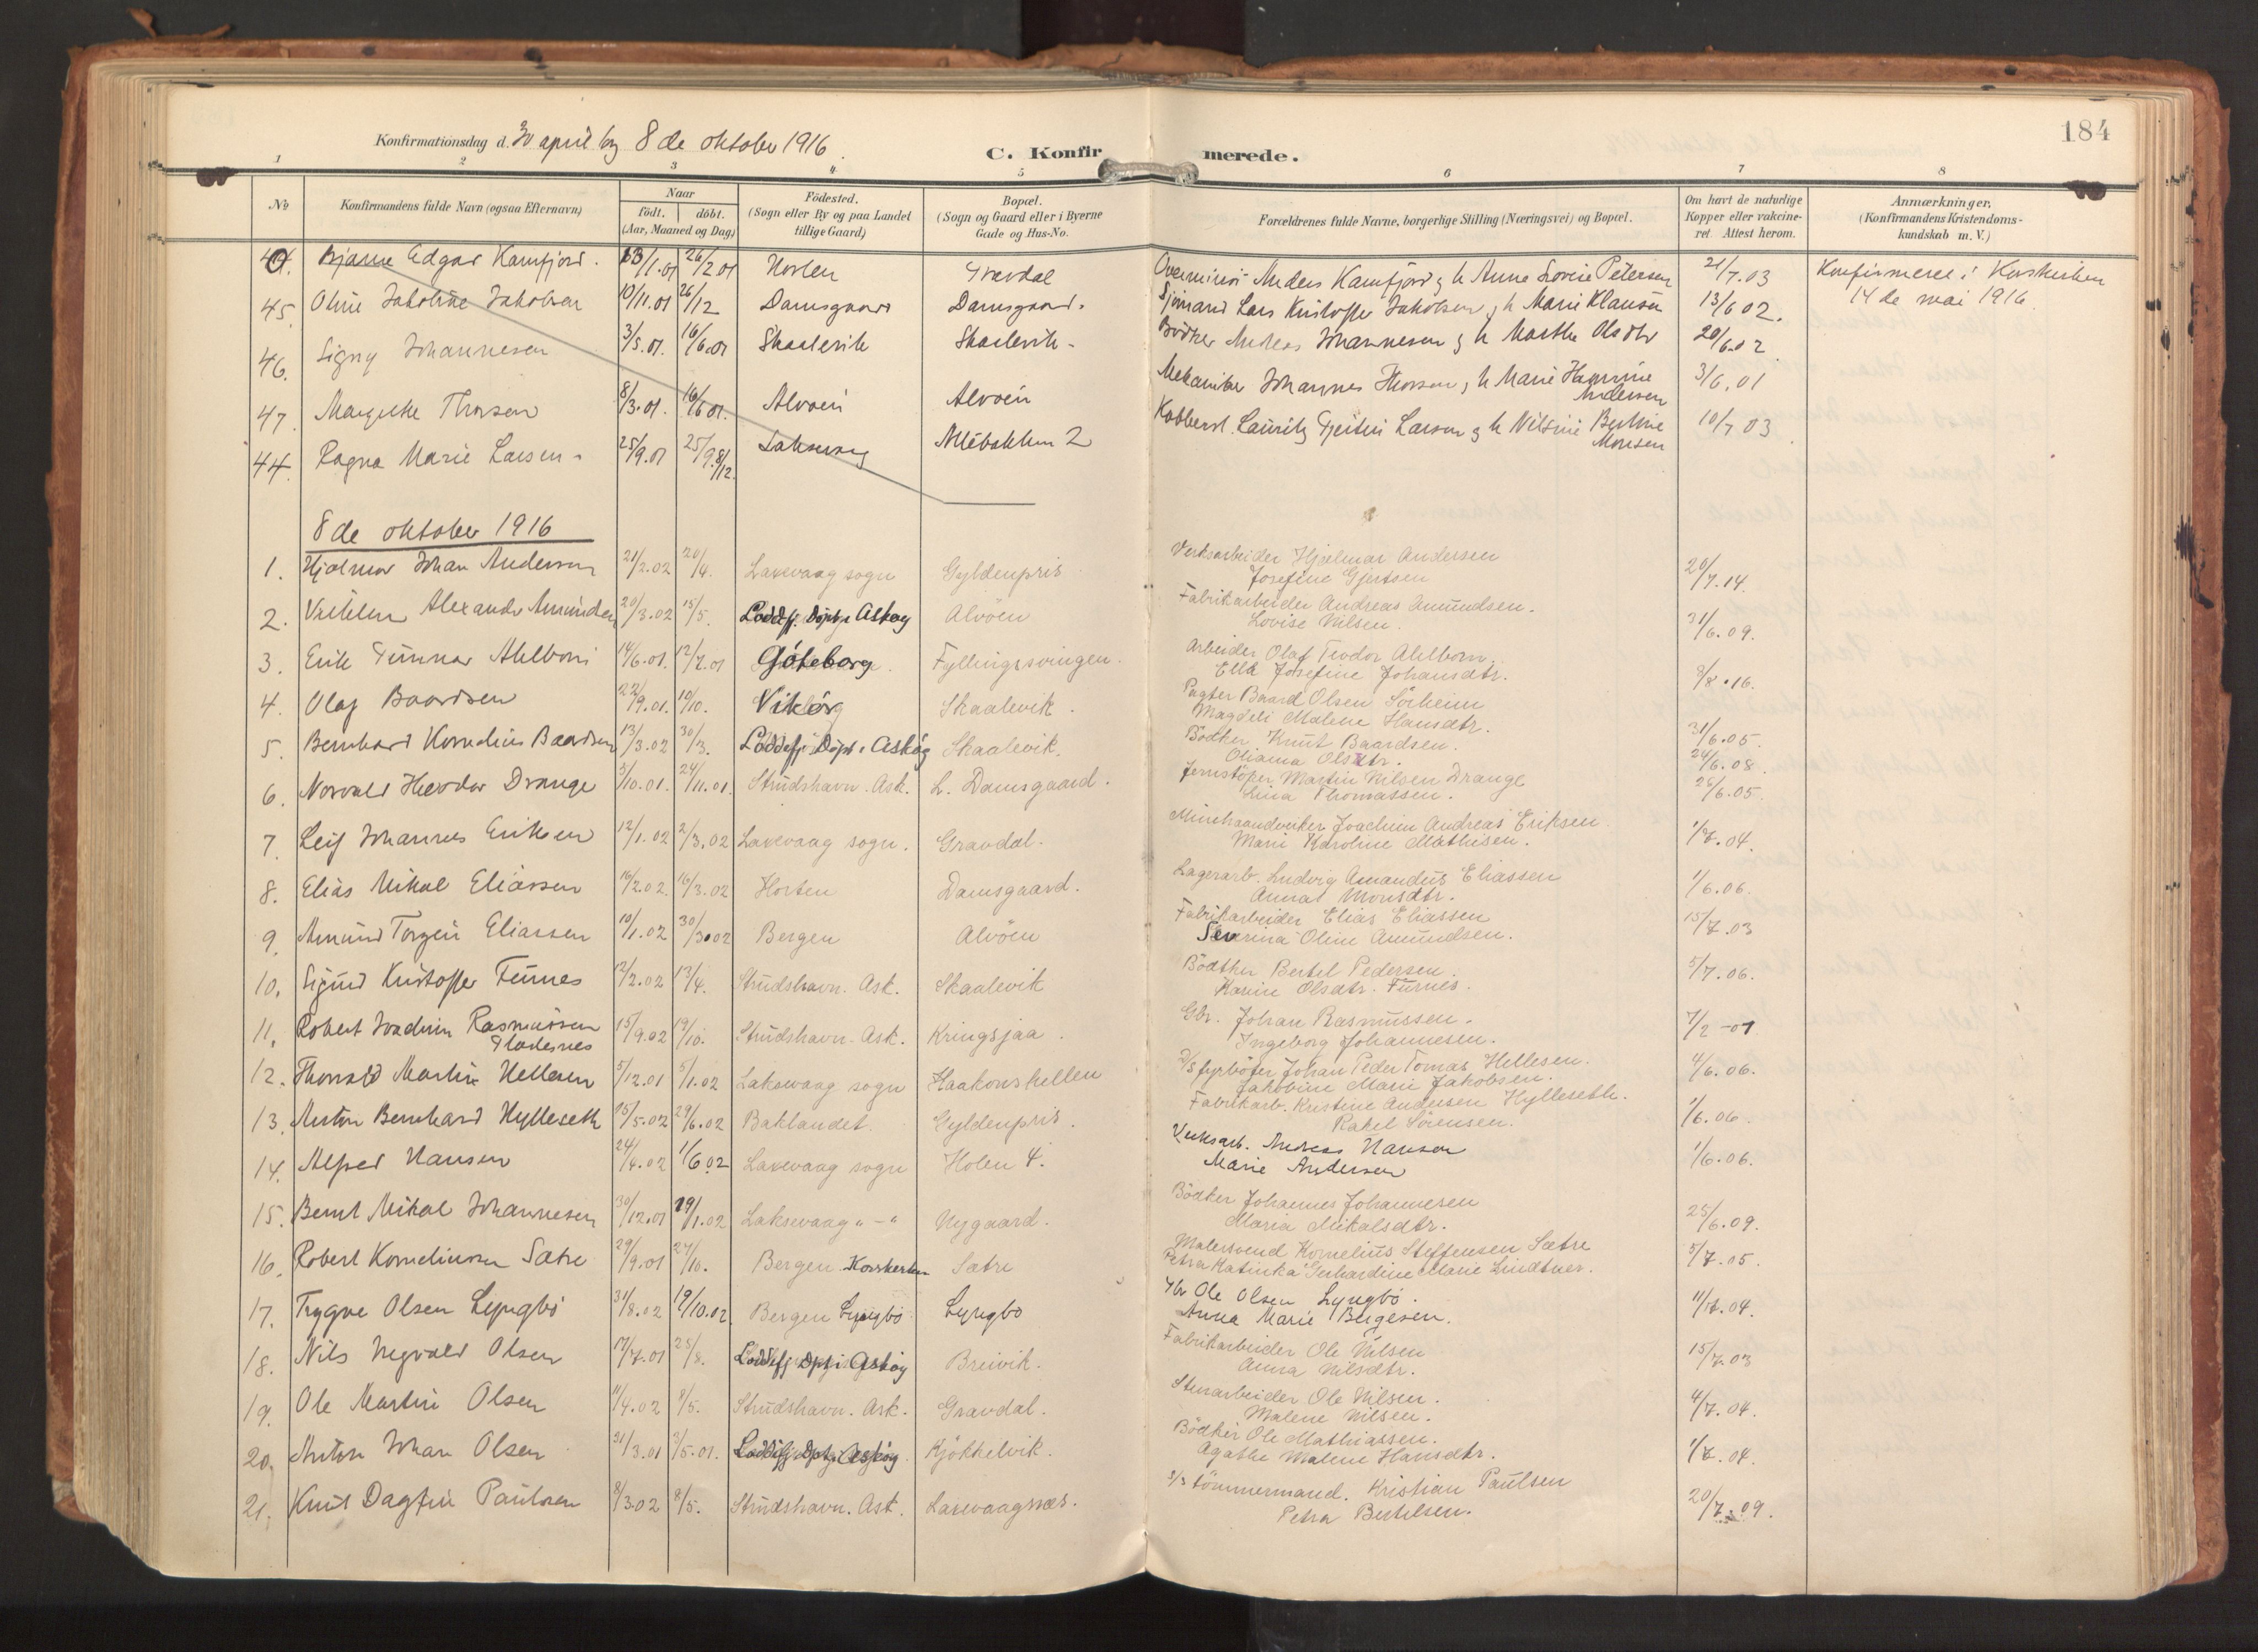 184
Konfirmationsdag d. 30 april og 8 de oktober 1916.
C. Konfirmerede.
1 2 3 4 5 6 7 8
No
Konfirmandens fulde Navn (ogsaa Efternavn)
Naar
födt. döbt.
(Aar, Maaned og Dag)
Födested.
(Sogn eller By og paa Landet
tillige Gaard)
Bopæl.
(Sogn og Gaard eller i Byerne
Gade og Hus-No.
Forældrenes fulde Navne, borgerlige Stilling (Næringsvei) og Bopæl.
Om havt de naturlige
Kopper eller vakcine-
ret Attest herom.
Anmærkninger.
(Konfirmandens Kristendoms-
kundskab m. V.)
Bjarne Edgar Kamfjord. 26/2 01 Horten Gravdal Anders Kamfjord og h Anna Lovise Petersen 21/7.03 Konfirmeret i Korskirken
14 de mai 1916
45. Oline Jakobine Jakobsen 10/11.01 26/12 Damsgaard Damsgaard. Sjömand Lars Kristoffer Jakobsen og h Marie Klausen 13/6 02.
46. Signy Johannesen 3/5.01. 16/6.01 Skaalevik Skaalevik Bödker Andreas Johannesen og h Marthe Olsdtr 20/6.02
47. Margrethe Thorsen 8/3.01. 16/6 01. Alvöen Alvöen Mekaniker Johannes Thorsen og h Marie Hansine
Andersen 3/6.01
44. Ragna Marie Larsen 25/9.01 25/9. 8/12. Laksevaag Kobbersl. Lauritz Larsen og h Nilsine Bertine
Monsen 10/7 03
8 de oktober 1916
1. Hjalmar Johan Andersen 21/2.02 20/4. Laxevaag sogn Gyldenpris Verksarbeider Hjalmar Andersen
Josefine Gjertsen 20/7.14.
2. Vilhelm Alexander Amundsen 20/3.02 15/5. Loddefj. Döpt i Asköy Alvöen Fabrikarbeider Andreas Amundsen.
Lovise Nilsen. 31/6.09.
3. Erik Gunnar Ahlborn 14/6.01. 12/7.01 Göteborg Fyllingssvingen. Arbeider Olaf Teodor Ahlborn.
Ella Josefine Johansdtr. 8/8.16.
4. Olaf Baardsen 22/9.01. 10/10. Vikör Skaalevik. Pagter Baard Olsen Sörheim
Magdeli Malene Hansdtr. 31/6.05.
5. Bernhard Kornelius Baardsen 13/3.02 30/3. Loddefj. Döpt i Asköy Skaalevik. Bödker Knut Baardsen.
Oliana Olsdtr. 24/6.08.
6. Norvald Theodor Drange 5/10.01. 24/11.01. Strudshavn. Ask. L. Damsgaard. Jernstöper Martin Nilsen Drange
Lina Thomassen. 28/6.05
7. Leif Johannes Eriksen 12/1.02 2/3.02 Laxevaag sogn. Gravdal. Minehaandverker Joachim Andreas Eriksen
Marie Karoline Mathisen. 1/7.04.
8. Elias Mikal Eliassen 16/2.02. 16/3.02 Horten Damsgaard. Lagerarb. Ludvig Amandus Eliassen
Anna Monsdtr. 1/6.06.
9. Amund Torgeir Eliassen 10/1.02 30/3.02 Bergen Alvöen Fabrikarbeider Elias Eliassen
Severina Oline Amundsen. 15/7.03
10. Sigurd Kristoffer Furnes 12/2.02 13/4. Strudshavn. Ask. Skaalevik Bödker Bertel Pedersen.
Karine Olsdtr. Furnes. 5/7.06.
11. Robert Joachim Rasmussen
15/9.02 19/10. Strudshavn. Ask. Kringsjaa. Gbr. Johan Rasmussen.
Ingeborg Johannesen. 7/2-07
12. Thorvald Martin Hellesen 5/12.01 5/1.02 Laksevaag sogn Haakonshellen D/S fyrböter Johan Peder Tomas Hellesen.
Jakobine Marie Jakobsen. 4/6.06.
13. Anton Bernhard Hylleseth 15/5.02 29/6.02 Baklandet. Gyldenpris. Fabrikarb. Kristine Andersen Hylleseth.
Rakel Sörensen. 1/6.06.
14. Alfred Hansen 24/4.02 1/6.02 Laxevaag sogn Holen 4. Verksarb. Andreas Hansen
Marie Andersen 1/6.06.
15. Bernt Mikal Johannesen 30/12.01 29/1.02 Laksevaag „-" Nygaard. Bödker Johannes Johannesen
Maria Mikalsdtr. 25/6.09.
16. Robert Korneliussen Sætre 29/9.01 27/10. Bergen Korskirken Sætre Malersvend Kornelius Steffensen Sætre
Petra Katinka Gerhardine Marie Lindtner. 5/7.05.
17. Trygve Olsen Lyngbö 31/8.02 19/10.02 Bergen Lyngbö Lyngbö Gbr Ole Olsen Lyngbö.
Anna Marie Birgesen. 11/7.04.
18. Nils Ingvald Olsen 17/7.01 25/8. Loddefj. Döpt i Asköy Breivik. Fabrikarbeider Ole Nilsen
Anna Nilsdtr. 15/7.03
19. Ole Martin Olsen 11/4.02 8/5. Strudshavn. Ask. Gravdal. Stenarbeider Ole Nilsen.
Malene Nilsen. 4/7.04.
20. Anton Johan Olsen 31/3.01 3/5.01. Loddefj. Döpt i Asköy Kjökkelvik. Bödker Ole Mathiassen.
Agathe Malene Hansdtr. 1/7.04.
21. Knut Dagfin Paulsen 8/3.02 8/5. Strudshavn. Ask. Laxevaagsnes. S/S tömmermand. Kristian Paulsen
Petra Bertelsen. 20/7.09.